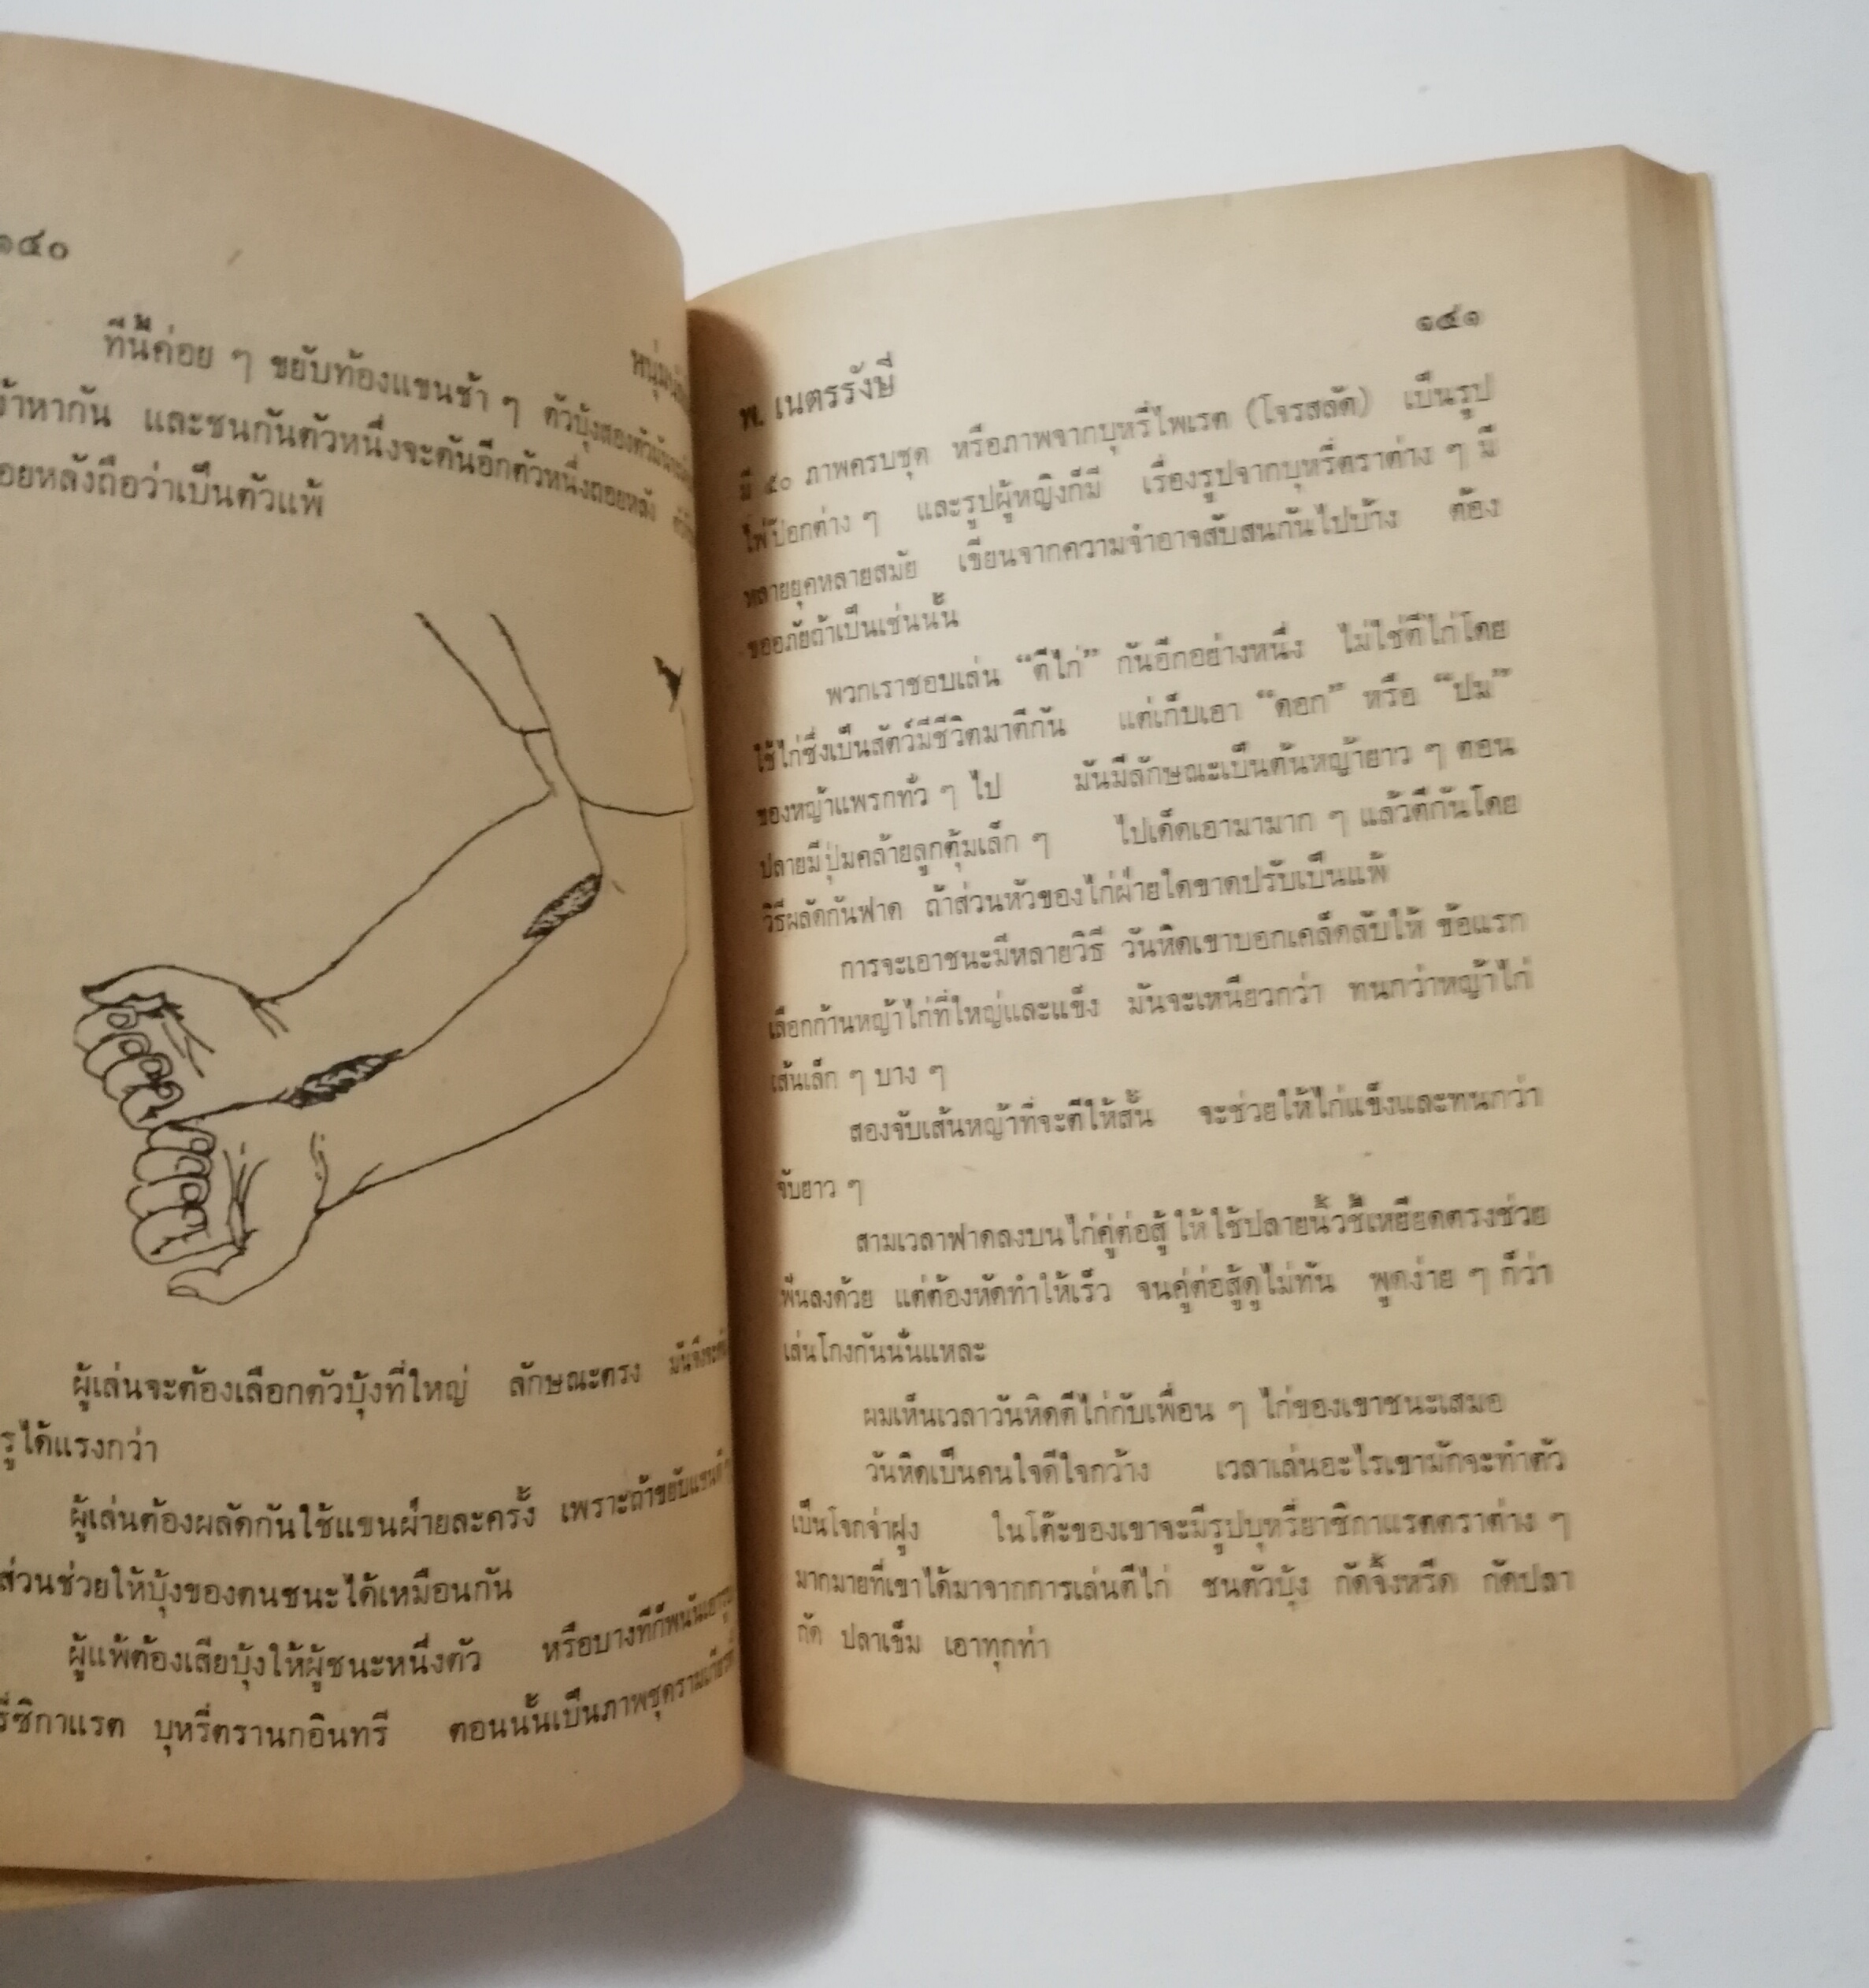 ๑๔๐
ทีนี้ค่อย ๆ ขยับท้องแขนช้า ๆ ตัวบุ้งสองตัวมัน
เข้าหากัน และชนกันตัวหนึ่งจะดันอีกตัวหนึ่งถอยหลัง
ถอยหลังถือว่าเป็นตัวแพ้
ผู้เล่นจะต้องเลือกตัวบุ้งที่ใหญ่ ลักษณะตรง
ได้แรงกว่า
ผู้เล่นต้องผลัดกันใช้แขนฝ่ายละครั้ง เพราะถ้าขยับแขน
ส่วนช่วยให้บุ้งของตนชนะได้เหมือนกัน
ผู้แพ้ต้องเสียบุ้งให้ผู้ชนะหนึ่งตัว หรือบางทีก็พนัน
ซิกาแรต บุหรี่ตรานกอินทรี ตอนนั้นเป็นภาพชุดรามเกียรติ์
๑๔๑
พ. เนตรรังษี
มี ๕๐ ภาพครบชุด หรือภาพจากบุหรี่ไพเรต (โจรสลัด) เป็นรูป
ไพ่ป๊อกต่าง ๆ และรูปผู้หญิงก็มี เรื่องรูปจากบุหรี่ตราต่าง ๆ มี
หลายยุคหลายสมัย เขียนจากความจำอาจสับสนกันไปบ้าง ต้อง
ขออภัยถ้าเป็นเช่นนั้น
พวกเราชอบเล่น “ตีไก่” กันอีกอย่างหนึ่ง ไม่ใช่ตีไก่โดย
ใช้ไก่ซึ่งเป็นสัตว์มีชีวิตมาตีกัน แต่เก็บเอา “ดอก” หรือ “ปม”
ของหญ้าแพรกทั่ว ๆ ไป มันมีลักษณะเป็นต้นหญ้ายาว ๆ ตอน
ปลายมีปุ่มคล้ายลูกตุ้มเล็ก ๆ ไปเด็ดเอามามาก ๆ แล้วตีกันโดย
วิธีผลัดกันฟาด ถ้าส่วนหัวของไก่ฝ่ายใดขาดปรับเป็นแพ้
การจะเอาชนะมีหลายวิธี วันหิดเขาบอกเคล็ดลับให้ ข้อแรก
เลือกก้านหญ้าไก่ที่ใหญ่และแข็ง มันจะเหนียวกว่า ทนกว่าหญ้าไก่
เส้นเล็ก ๆ บาง ๆ
สองจับเส้นหญ้าที่จะตีให้สั้น จะช่วยให้ไก่แข็งและทนกว่า
จับยาว ๆ
สามเวลาฟาดลงบนไก่คู่ต่อสู้ ให้ใช้ปลายนิ้วชี้เหยียดตรงช่วย
พันลงด้วย แต่ต้องหัดทำให้เร็ว จนคู่ต่อสู้ดูไม่ทัน พูดง่าย ๆ ก็ว่า
เล่นโกงกันนั่นแหละ
ผมเห็นเวลาวันหิดตีไก่กับเพื่อน ๆ ไก่ของเขาชนะเสมอ
วันหิดเป็นคนใจดีใจกว้าง เวลาเล่นอะไรเขามักจะทำตัว
เป็นโจกจ่าฝูง ในโต๊ะของเขาจะมีรูปบุหรี่ยาซิกาแรตตราต่าง ๆ
มากมายที่เขาได้มาจากการเล่นตีไก่ ชนตัวบุ้ง กัดจิ้งหรีด กัดปลา
กัด ปลาเข็ม เอาทุกท่า